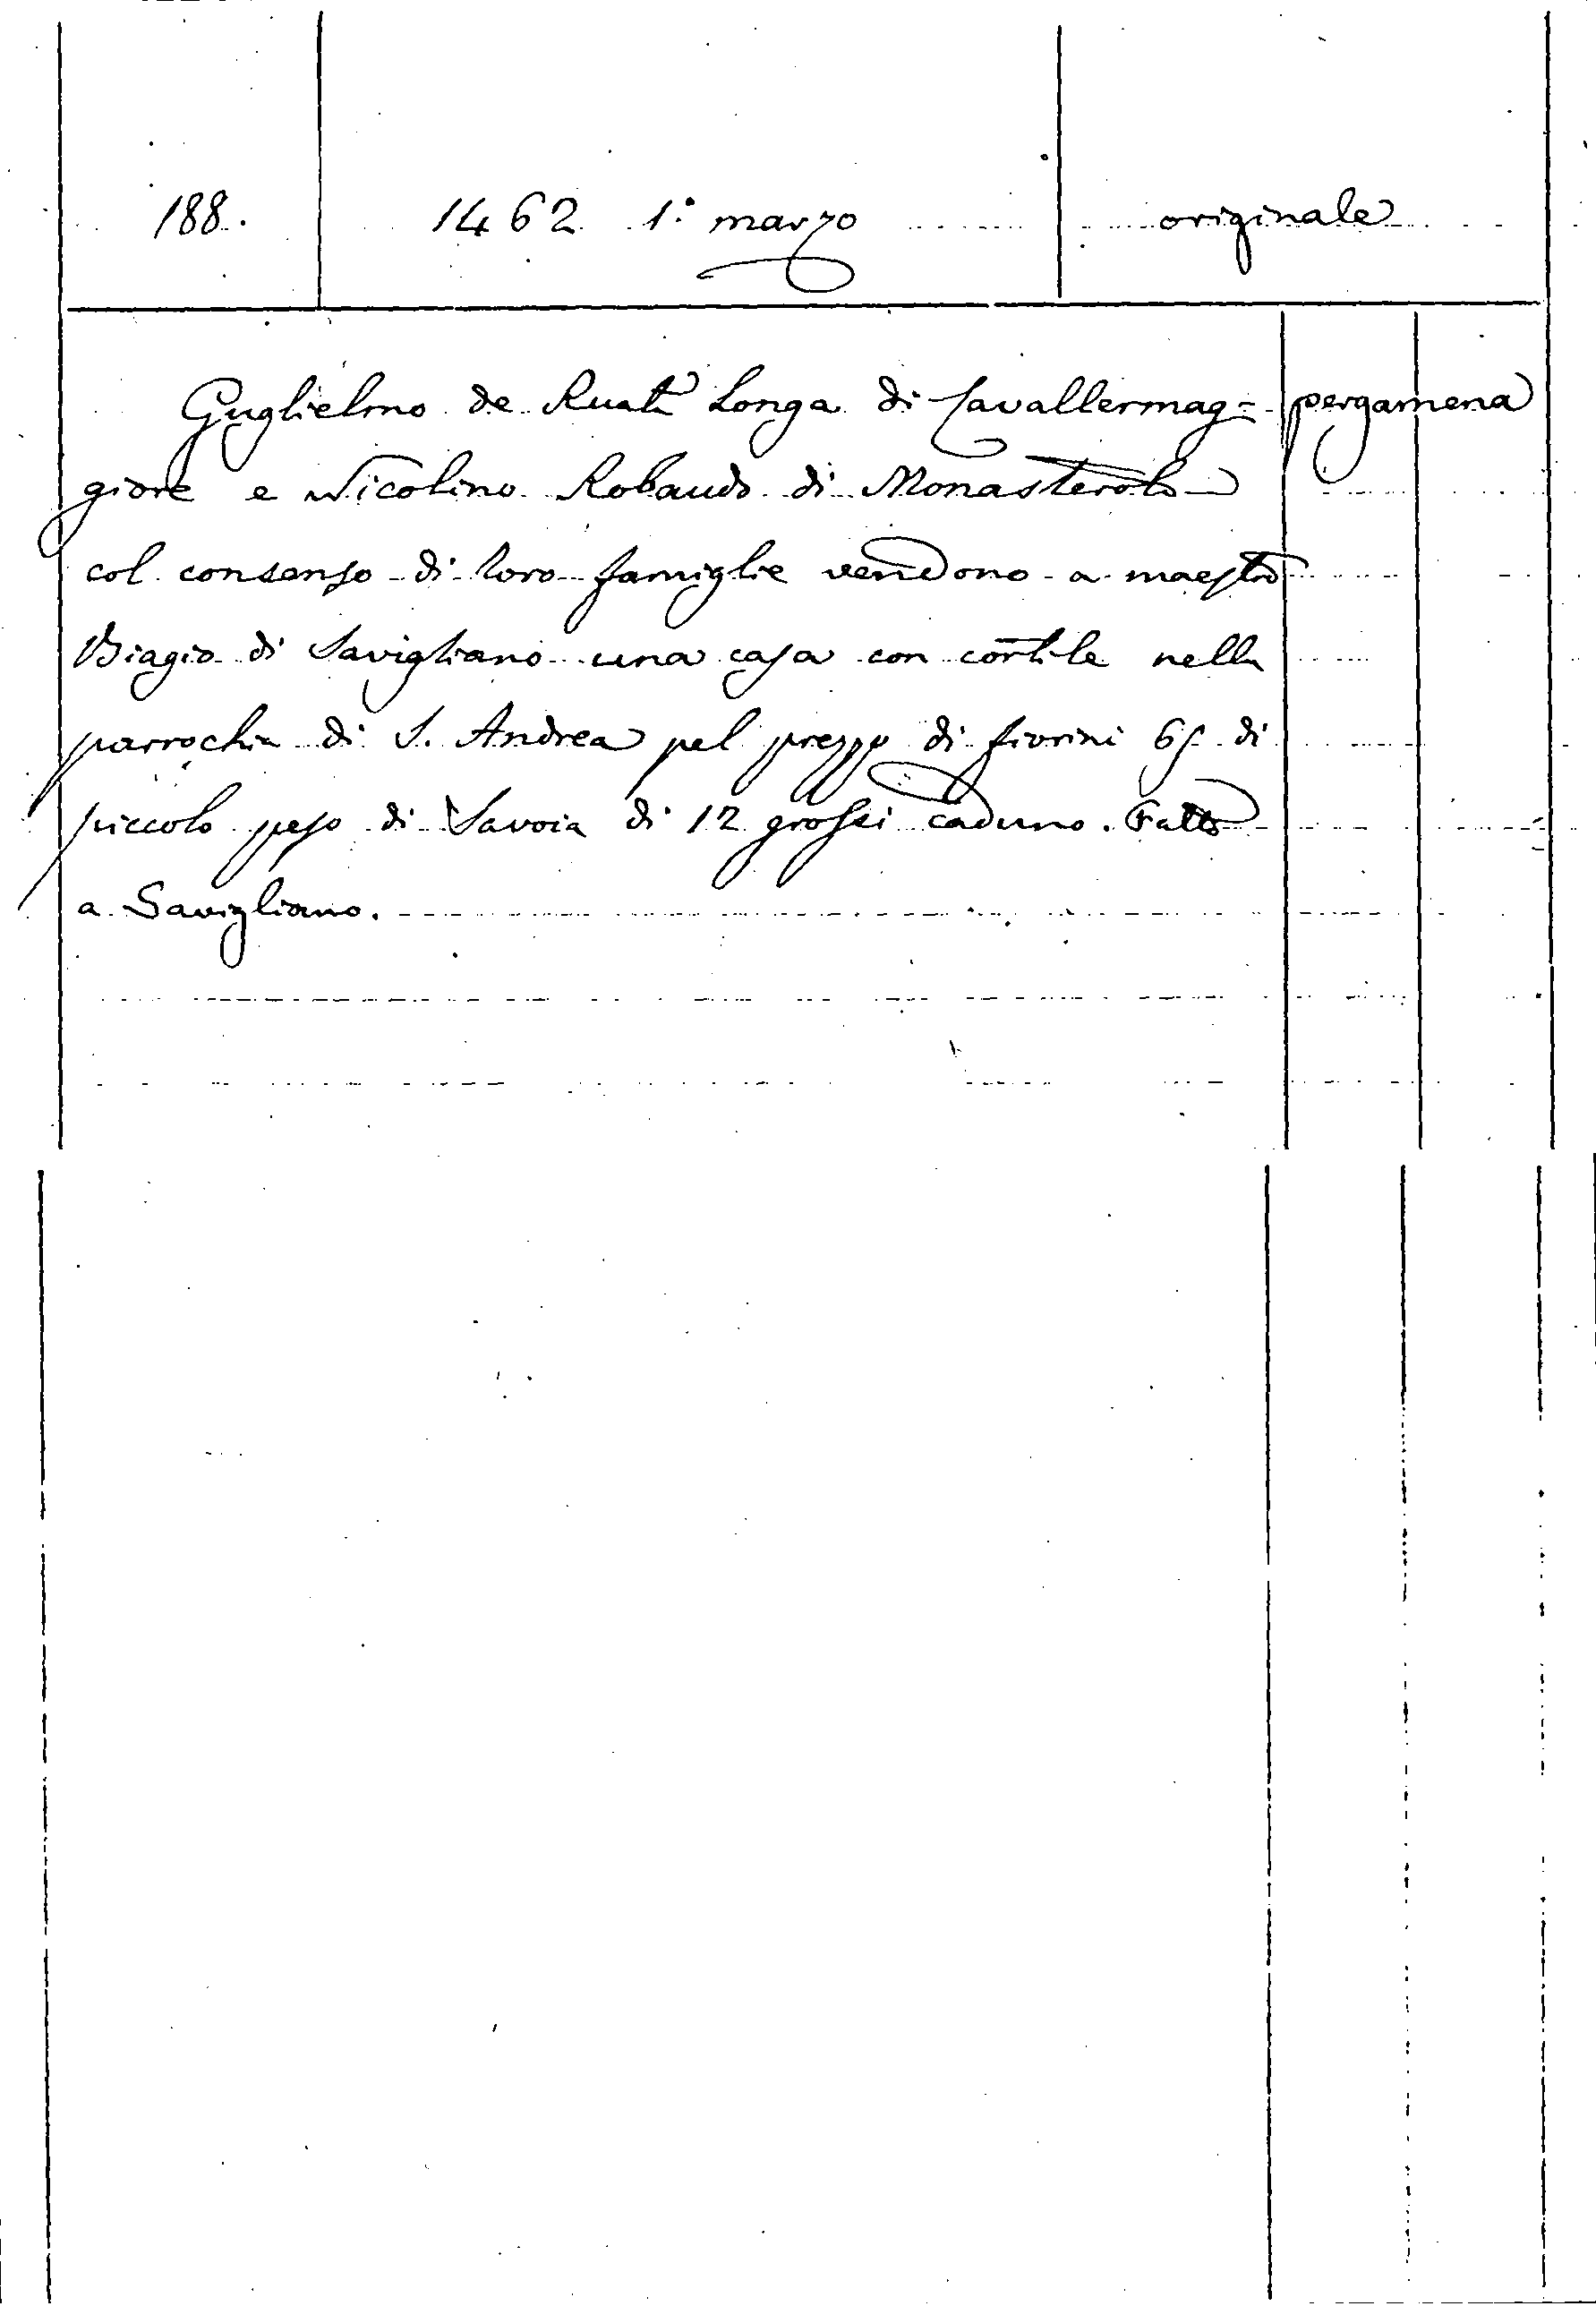 188. 1462 1.° marzo originale
Guglielmo de Ruata Longa di Cavallermag= pergamena
giore e Nicolino Robaudo di Monasterolo
col consenso di loro famiglie vendono a maestro
Biagio di Savigliano una casa con cortile nella
parrochia di S. Andrea pel prezzo di fiorini 65 di
piccolo peso di Savoia di 12 grossi caduno. Fatto
a Savigliano.